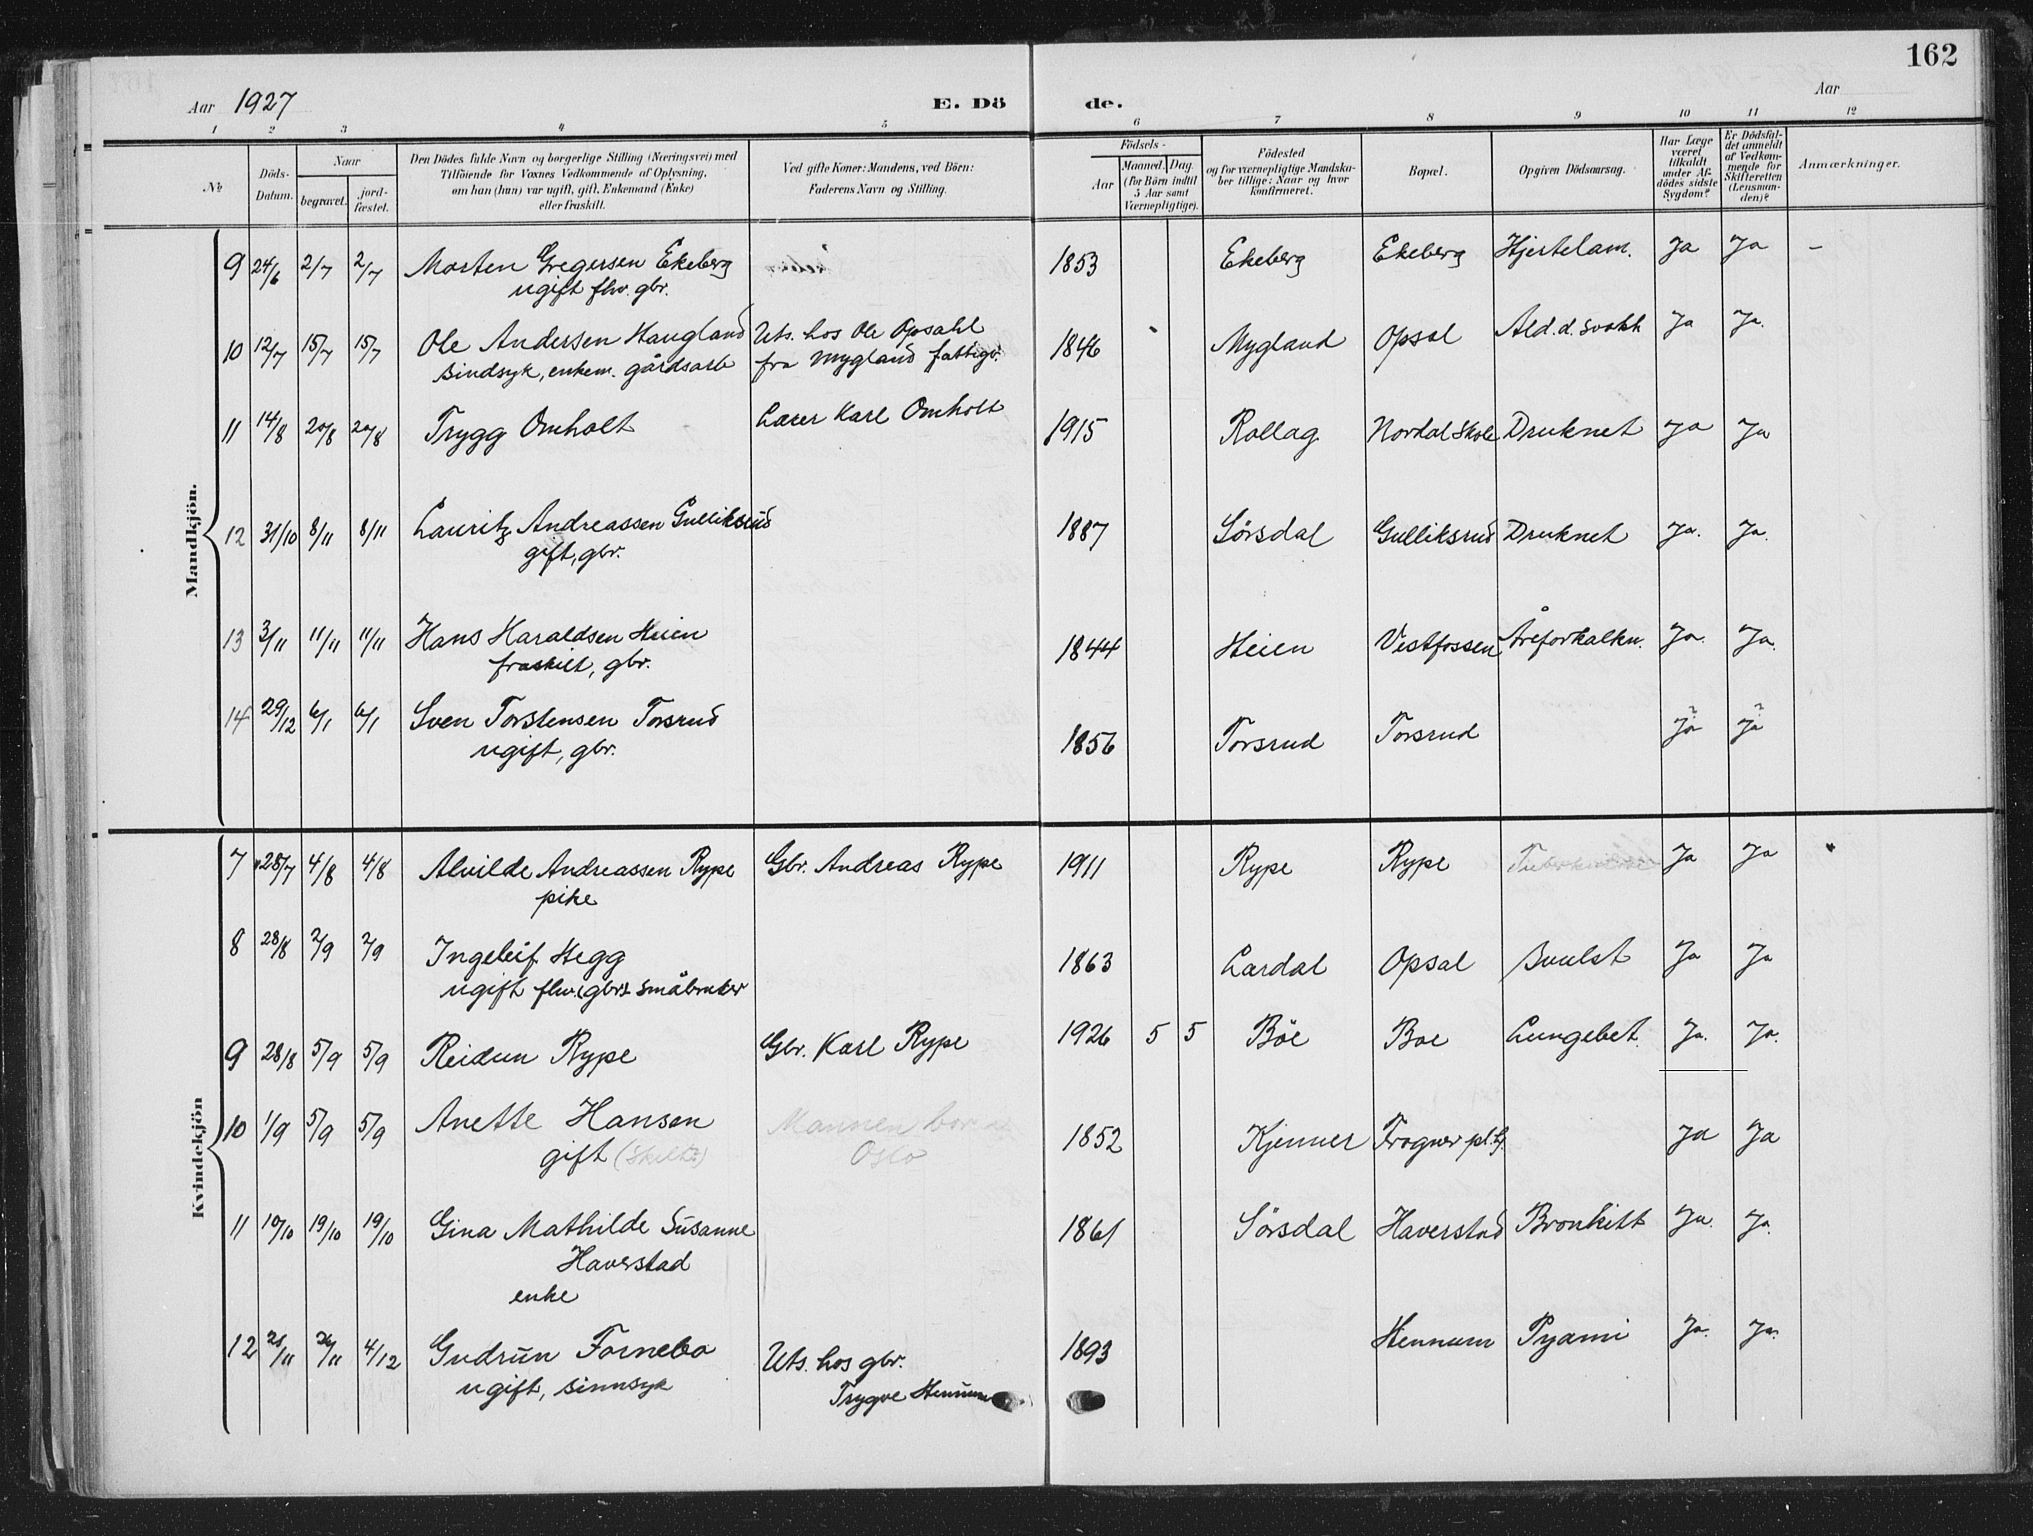 162
Aar 1927 E. Dö de. Aar
1 2 3 4 5 6 7 8 9 10 11 12
№ Döds-Datum. Naar begravet. jord-fæstet. Den Dödes fulde Navn og borgerlige Stilling (Næringsvei) med Tilföiende for Voxnes Vedkommende af Oplysning, om han (hun) var ugift, gift, Enkemand (Enke) eller fraskilt. Ved gifte Koner: Mandens, ved Börn: Faderens Navn og Stilling. Födsels- Aar Maaned. Dag. (for Börn indtil 5 Aar samt Værnepligtige). Födested og for værnepligtige Mandskaber tillige: Naar og hvor konfirmeret. Bopæl. Opgiven Dödsaarsag. Har Læge været tilkaldt under Afdödes sidste Sygdom? Er Dödsfaldet anmeldt af Vedkommende for Skifteretten (Lensmanden)? Anmærkninger.
Mandkjön.
9 24/6 2/7 2/7 Morten Gregersen Ekeberg 1853 Ekeberg Ekeberg Hjertelam. Ja Ja –
ugift fhv. gbr.
10 12/7 15/7 15/7 Ole Andersen Haugland Uts. hos Ole Opsahl 1846 Mygland Opsal Ald.d. svakh Ja Ja.
sindsyk, enkem. gårdsarb fra Mygland fattigv.
11 14/8 20/8 20/8 Trygg Omholt Lærer Karl Omholt 1915 Rollag Nordal Skole Druknet Ja Ja
12 31/10 8/11 8/11 Lauritz Andreassen Gulliksrud 1887 Sörsdal Gulliksrud Druknet Ja. Ja.
gift, gbr.
13 3/11 11/11 11/11 Hans Haraldsen Heien 1844 Heien Vestfossen Åreforkalkn. Ja. Ja.
fraskilt, gbr.
14 29/12 6/1 6/1 Sven Torstensen Torsrud 1856 Torsrud Torsrud Ja Ja
ugift, gbr.
Kvindekjön
7 28/7 4/8 4/8 Alvilde Andreassen Rype Gbr. Andreas Rype 1911 Rype Rype Tuberkulose Ja Ja
pike
8 28/8 2/9 2/9 Ingeleif Hegg 1863 Lardal Opsal Svulst Ja Ja
ugift fhv. (gbr) småbruker
9 28/8 5/9 5/9 Reidun Rype Gbr. Karl Rype 1926 5 5 Böe Boe Lungebet. Ja. Ja.
10 1/9 5/9 5/9 Anette Hansen Mannen bor 1852 Kjenner Frogner pl. Ja Ja
gift (skilt?) Oslo
11 10/10 19/10 19/10 Gina Mathilde Susanne 1861 Sörsdal Haverstad Bronkitt Ja. Ja.
Haverstad
enke
12 21/11 26/11 4/12 Gudrun Fornebo Uts. hos gbr. 1893 Hennum Pyami Ja. Ja.
ugift, sinnsyk Trygve Hennum